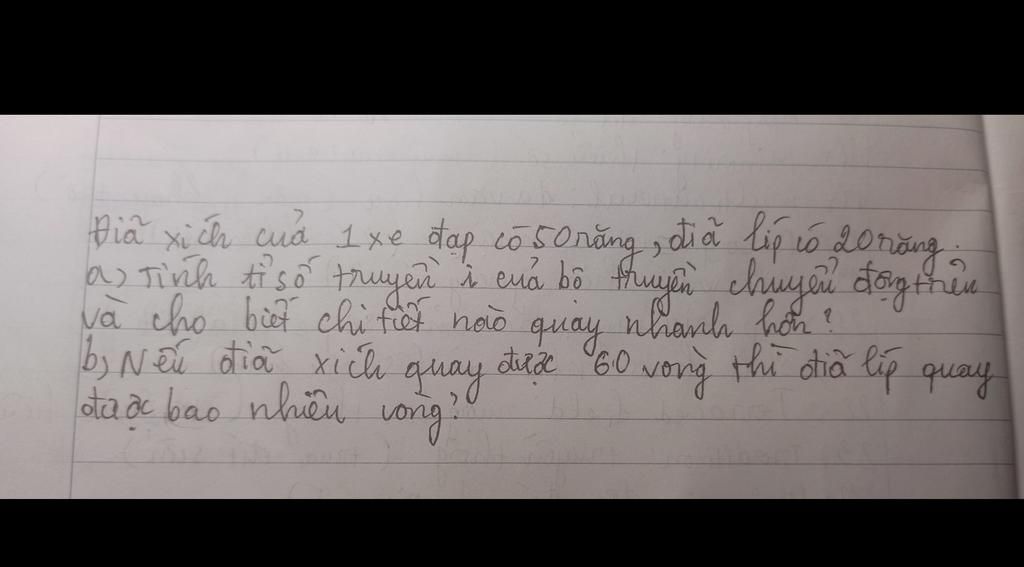 Điã xích cuả 1 xe đạp có 50 răng, điã líp có 20 răng.
a, Tính tỉ số truyền i cuả bộ truyền chuyển động trên
và cho biết chi tiết nào quay nhanh hơn?
b, Nếu điã xích quay được 60 vòng thì điã líp quay
được bao nhiêu vòng?